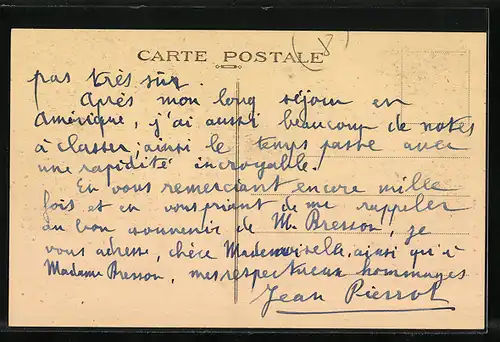 (8)
CARTE POSTALE
pas très sûr.
Après mon long séjour en
Amérique, j'ai aussi beaucoup de notes
à classer; ainsi le temps passe avec
une rapidité incroyable.
En vous remerciant encore mille
fois et en vous priant de me rappeler
au bon souvenir de Mr Bresson, je
vous adresse, chère Mademoiselle, ainsi qu'à
Madame Bresson, mes respectueux hommages
Jean Pierrot